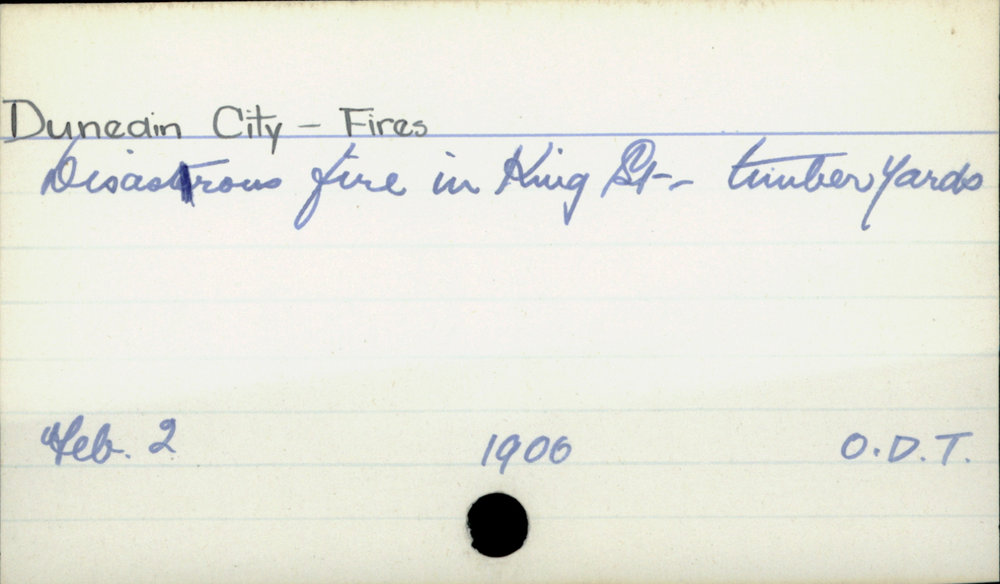 Dunedin City - Fires
Disastrous fire in King St- timber yards
Feb. 2 1906 O.D.T.